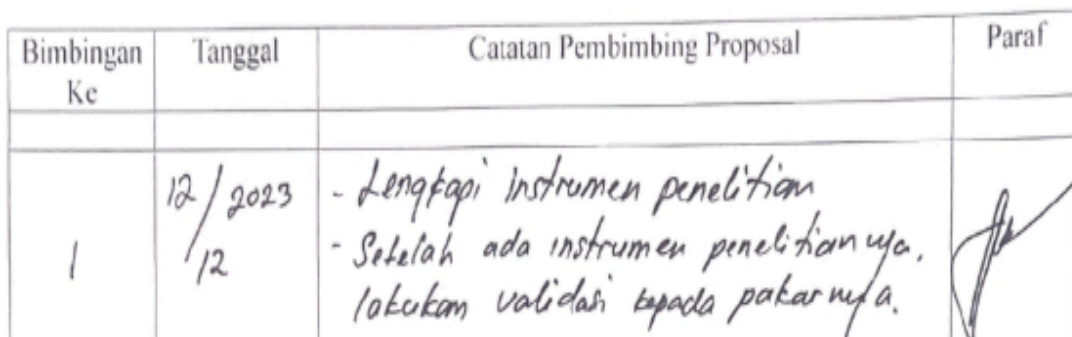 Bimbingan Ke
Tanggal
Catatan Pembimbing Proposal
Paraf
1
12/2023
12
- Lengkapi instrumen penelitian
- Setelah ada instrumen penelitiannya,
lakukan validasi kepada pakarnya.